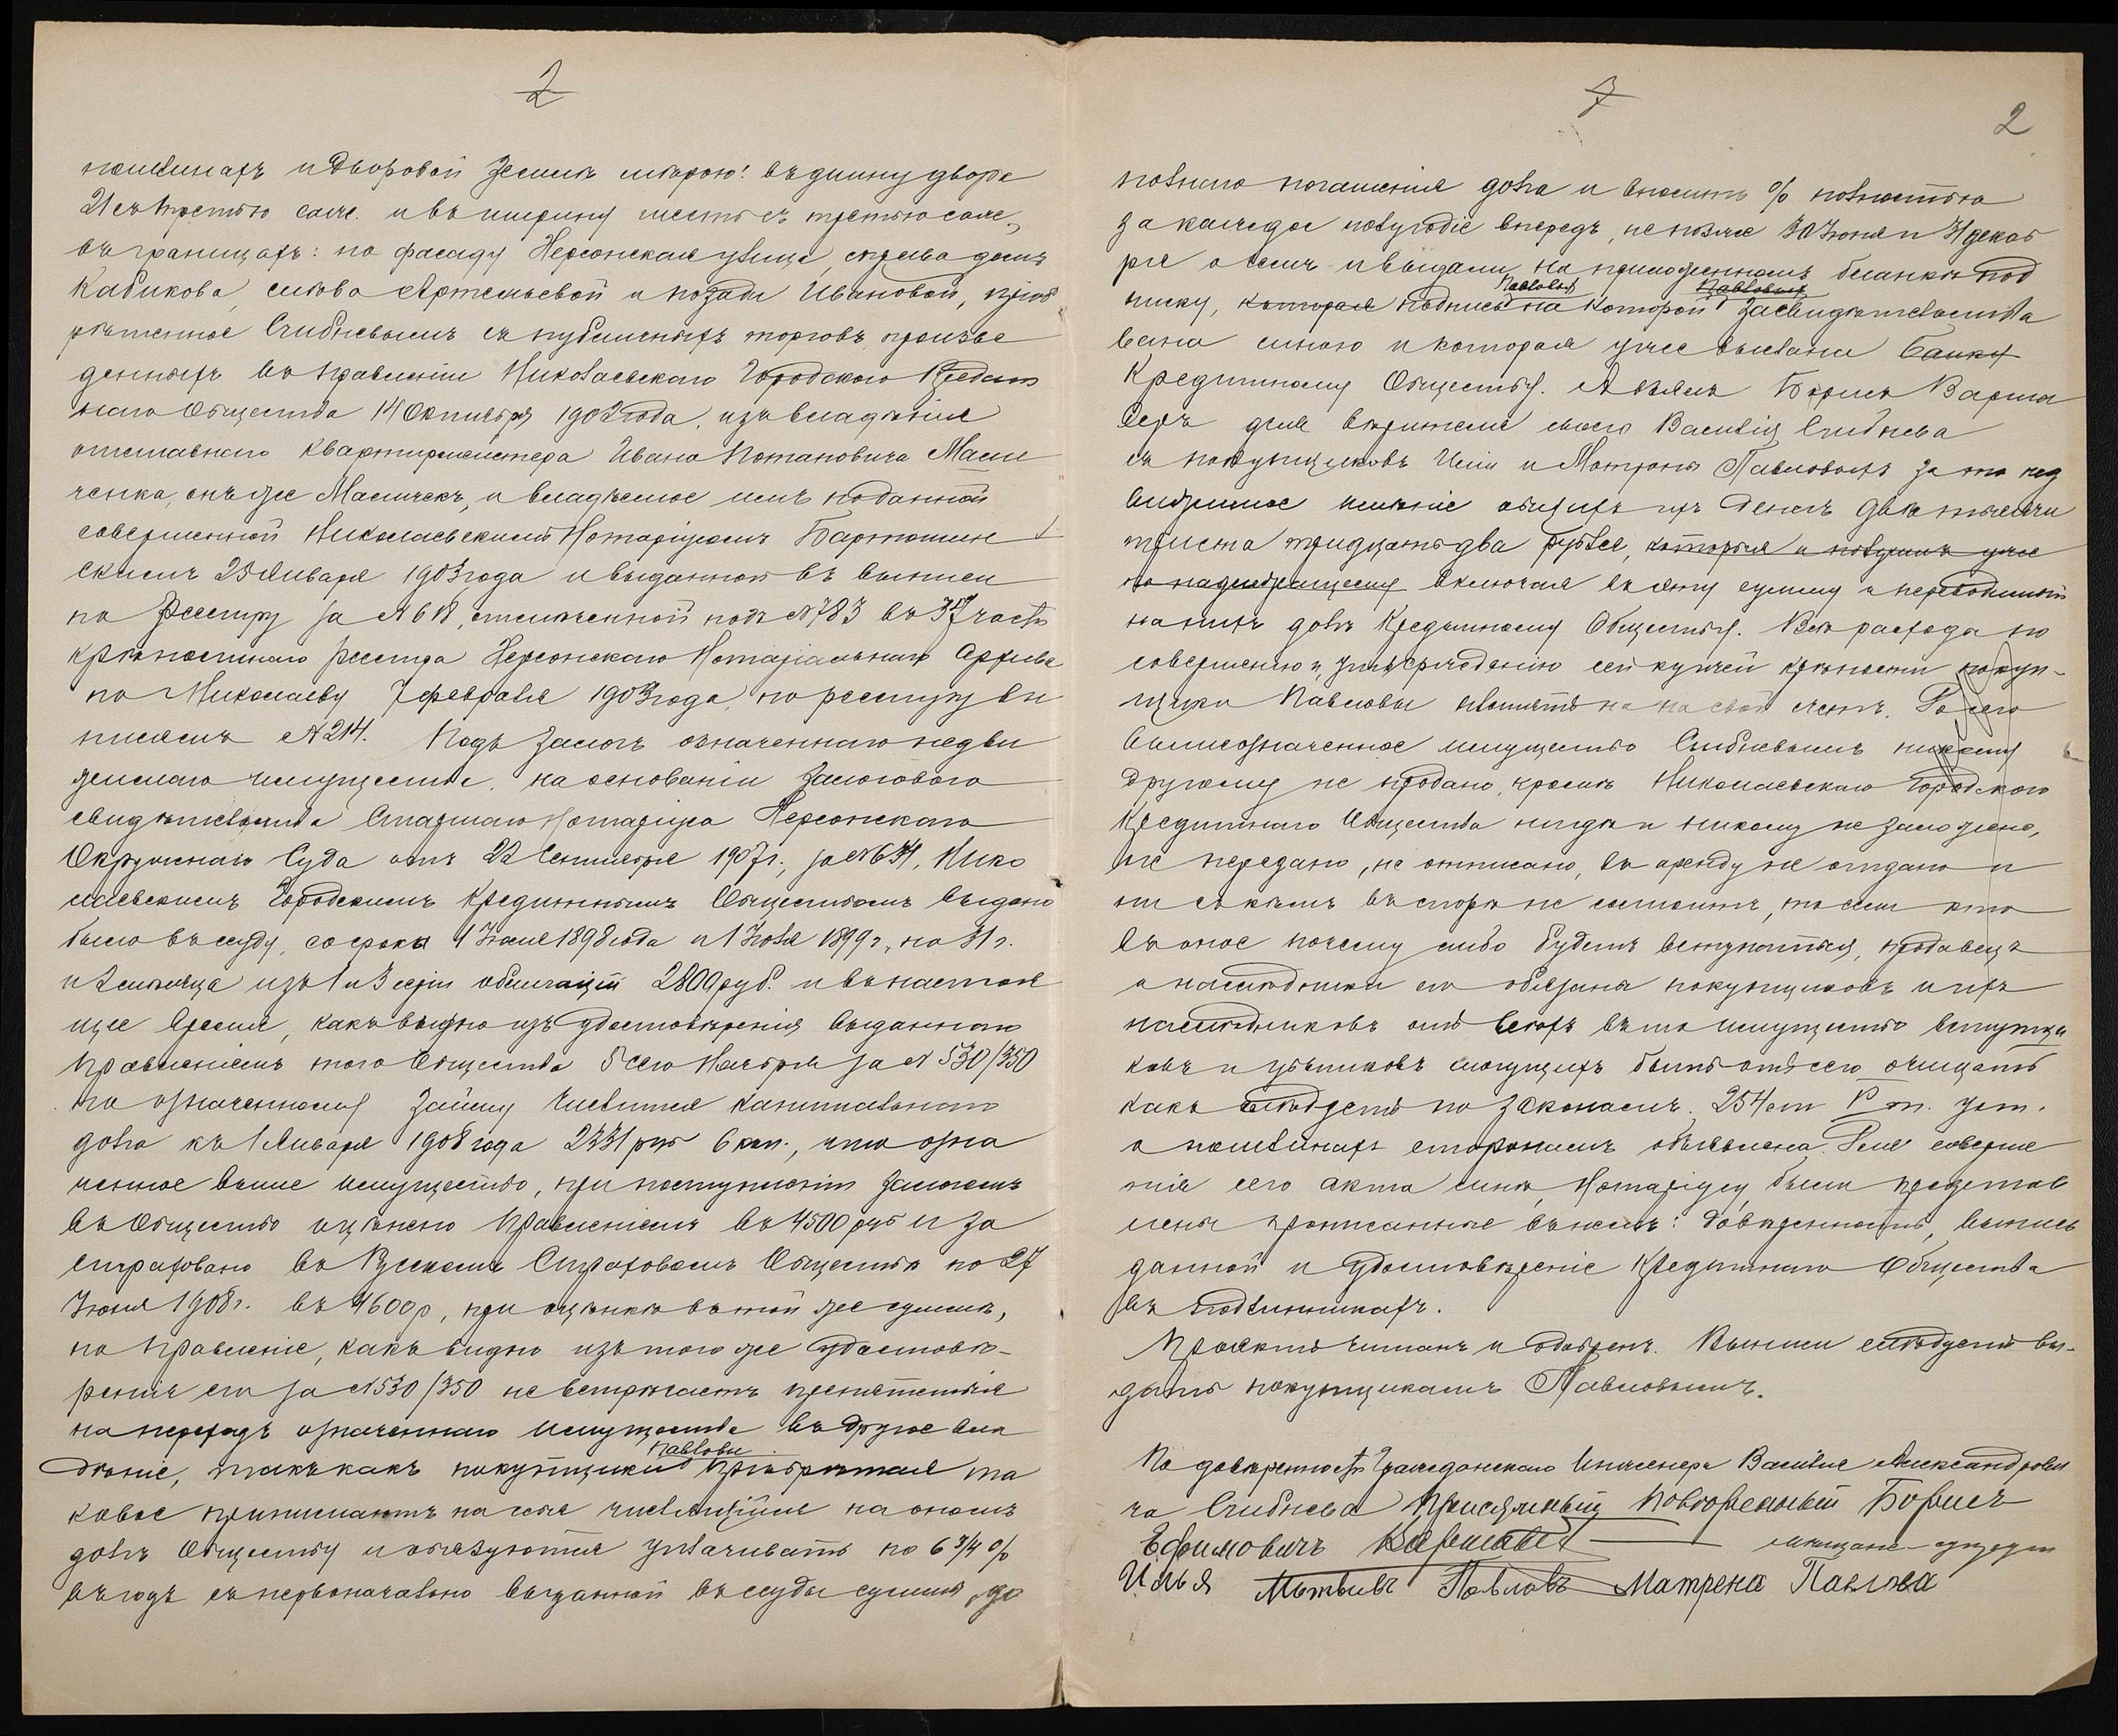 2
пошлинахъ и дворовой земли мѣрою: въ длину двора
21 съ третью саж. и въ ширину шесть съ третью саж.,
въ границахъ: по фасаду Херсонская улица, справа домъ
Кабикова, слѣва Артемьевой и позади Ивановой, пріоб
рѣтенное Сгибневымъ съ публичныхъ торговъ, произве
денныхъ въ Правленіи Николаевскаго Городского Кредит
наго Общества 14 Октября 1902 года, изъ владѣнія
отставного квартирмейстера Ивана Потаповича
онъ же и владѣемое имъ по данной
совершенной Николаевскимъ Нотаріусомъ Бартошин
скимъ 25 Января 1903 года и выданной въ выписи
по реестру за № 618, отмѣченной подъ № 783 въ 37 части
крѣпостнаго реестра Херсонскаго Нотаріальнаго Архива
по Николаеву 7 февраля 1903 года, по реестру вы
писямъ № 214. Подъ залогъ означеннаго недви
жимаго имущества, на основаніи залогового
свидѣтельства Старшаго Нотаріуса Херсонскаго
Окружнаго Суда отъ 22 Сентября 1907 г., за № 634, Нико
лаевскимъ Городскимъ Кредитнымъ Обществомъ выдано
было въ ссуду, со срока 1 1898 года и 1 Іюля 1899 г., на 31 г.
и 2 мѣсяца изъ 1 и 3 серіи облигацій 2800 руб. и въ настоя
щее время, какъ видно изъ удостовѣренія выданнаго
Правленіемъ того Общества 5 сего Ноября за № 530/350
по означенному займу числится капитальнаго
долга къ 1 Января 1908 года 2331 руб 6 коп., что озна
ченное выше имущество, при поступленіи залогомъ
въ Общество оцѣнено Правленіемъ въ 4500 руб и за
страховано въ Русскомъ Страховомъ Обществѣ по 27
Іюня 1908 г. въ 4600 р, при оцѣнкѣ въ той же суммѣ,
но Правленіе, какъ видно изъ того же удостовѣ-
ренія его за № 530/350 не встрѣчаетъ препятствія
на переходъ означеннаго имущества въ другое вла
дѣніе, такъ какъ покупщики Павловы пріобрѣтая та
ковое принимаютъ на себя числящійся на ономъ
долгъ Обществу и обязуются уплачивать по 6 3/4 %
въ годъ съ первоначально выданной въ ссуды суммы, до
7
2
полнаго погашенія долга и вносить % полностью
за каждое полугодіе впередъ, не позже 30 Іюня и 31 декаб
ря о чемъ и выдали на приложенномъ бланкѣ под
писку, которая подпись Павловыхъ на которой Павловыхъ засвидѣтельство
вана мною и которая уже выслана Банку
Кредитному Обществу. А взялъ Борисъ Варша
веръ для вѣрителя своего Василія Сгибнева
съ покупщиковъ Ильи и Матрены Павловыхъ за то нед
вижимое имѣніе обоихъ ихъ денегъ двѣ тысячи
триста тридцать два рубля, которыя и получилъ уже
по надлежащему включая въ эту сумму и переводимый
на нихъ долгъ Кредитному Обществу. Всѣ расходы по
совершенію и утвержденію сей купчей крѣпости покуп-
щики Павловы на на свой счетъ. До сего
вышеозначенное имущество Сгибневымъ никому
другому не продано, кромѣ Николаевскаго Городского
Кредитнаго Общества нигдѣ и никому не заложено,
не передано, не отписано, въ аренду не отдано и
ни съ кѣмъ въ спорѣ не состоитъ, то если кто
въ оное почему либо будетъ вступаться, продавецъ
и наслѣдники его обязаны покупщиковъ и ихъ
наслѣдниковъ отъ всѣхъ въ то имущество вступщи
ковъ и убытковъ могущихъ быть отъ сего очищать
какъ слѣдуетъ по законамъ. 254 ст V т. уст.
о пошлинахъ сторонамъ объявлена. Для соверше
нія сего акта мнѣ, Нотаріусу, были представ
лены прописанные въ немъ: довѣренность, выпись
данной и удостовѣреніе Кредитнаго Общества
въ подлинникахъ.
Проэктъ читанъ и одобренъ. Выписи слѣдуетъ вы-
дать покупщикамъ Павловымъ.
По довѣренности Гражданскаго Инженера Василія Александрови
ча Сгибнева Присяжный Повѣренный Борисъ
Ефимовичъ Варшаверъ мѣщане
Илья Матвѣевъ Павловъ Матрена Павлова